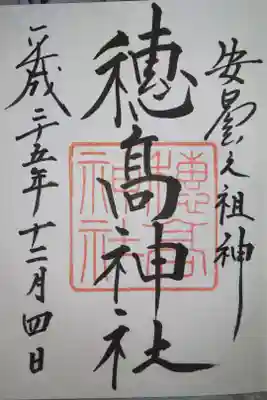 安曇之祖神
穂高神社
穂高神社
平成二十五年十二月四日